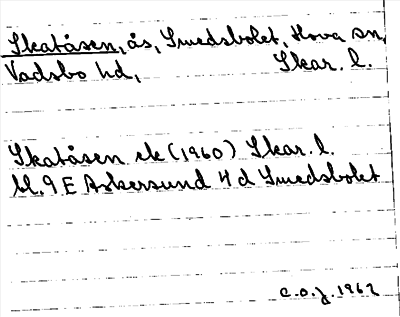 Skatåsen, ås, Smedsbolet, Hova sn,
Vadsbo hd, Skar. l.
Skatåsen ek (1960) Skar. l.
bl. 9 E Askersund 4 d Smedsbolet
C.O.J. 1962